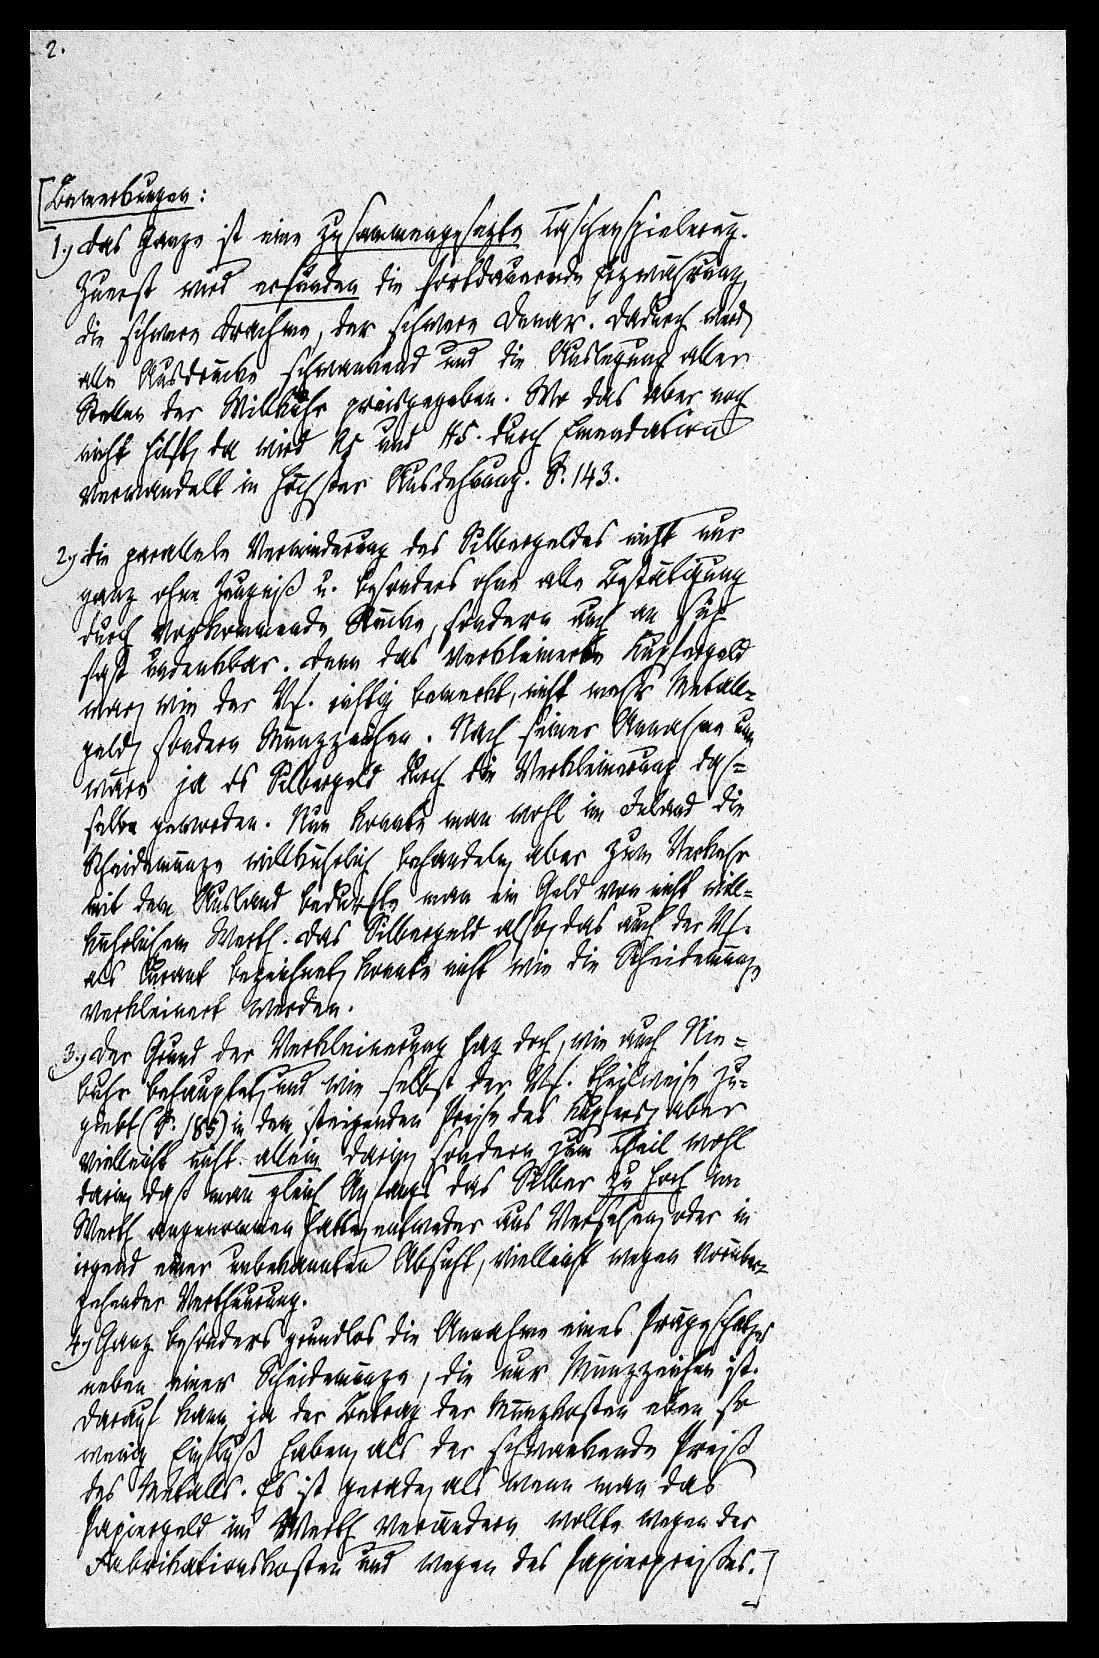 2.
[Bemerkungen:
1.) Das Ganze ist eine zusammengesezte Taschenspielerey.
Zuerst wird erfunden die fortdauernde Erzwährung,
die schwere Drachme, der schwere Denar. Dadurch werden
alle Ausdrücke schwankend und die Auslegung aller
Stellen der Willkühr preisgegeben. Wo das aber noch
nicht hilft, da wird As und HS. durch Emendation
verwandelt in höchster Ausdehnung. S. 143.
2.) Die parallele Verminderung des Silbergeldes nicht nur
ganz ohne Zeugniß u. besonders ohne alle Bestätigung
durch vorkommende Stücke, sondern auch an sich
fast undenkbar. Denn das verkleinerte Kupfergeld
war, wie der Vf. richtig bemerkt, nicht mehr Metall-
geld, sondern Münzzeichen. Nach seiner Annahme nun
wäre ja das Silbergeld durch die Verkleinerung das-
selbe geworden. Nun konnte man wohl im Inland die
Scheidemünze willkührlich behandeln, aber zum Verkehr
mit dem Ausland bedurfte man ein Geld von nicht will-
kührlichem Werth. Das Silbergeld also, das auch der Vf.
als Curant bezeichnet, konnte nicht wie die Scheidemünze
verkleinert werden.
3.) Der Grund der Verkleinerung lag doch, wie auch Nie-
buhr behauptet, und wie selbst der Vf. theilweise zu-
giebt (S. 185) in dem steigenden Preise des Kupfers, aber
vielleicht nicht allein darin, sondern zum Theil wohl
darin, daß man gleich Anfangs das Silber zu hoch im
Werth angenommen hatte, entweder aus Versehen, oder in
irgend einer unbekannten Absicht, vielleicht wegen vorüber-
gehender Vertheurung.
4.) Ganz besonders grundlos die Annahme eines Prägeschatzes
neben einer Scheidemünze, die nur Münzzeichen ist.
Darauf kann ja der Betrag der Münzkosten eben so
wenig Einfluß haben, als der schwankende Preiß
des Metalls. Es ist gerade, als wenn man das
Papiergeld im Werth verändern wollte wegen der
Fabrikationskosten und wegen des Papierpreißes.]